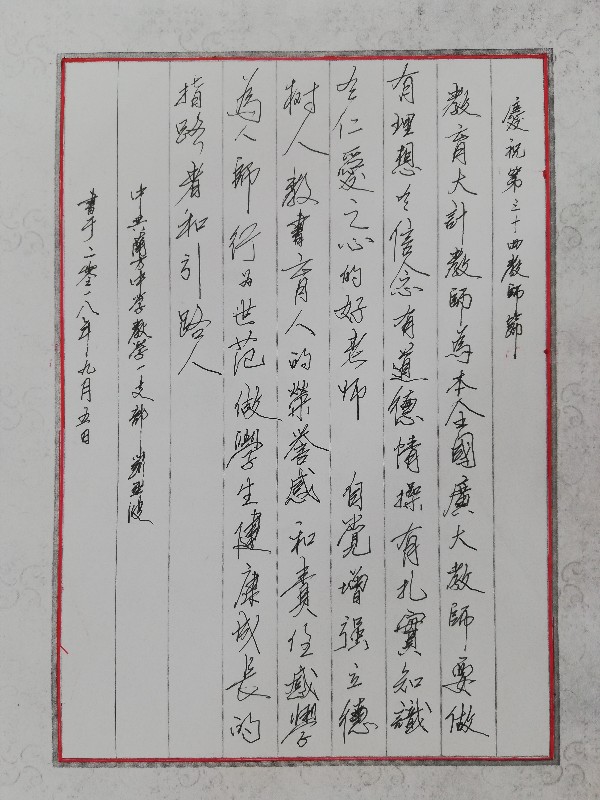 慶祝第三十四教師節
教育大計教師為本全國廣大教師要做
有理想有信念有道德情操有扎實知識
有仁愛之心的好老师 自覺增强立德
树人教書育人的榮譽感和責任感學
為人師行为世范做學生健康成長的
指路者和引路人
中共蘭方中学教学一支部
書于二零一八年九月五日